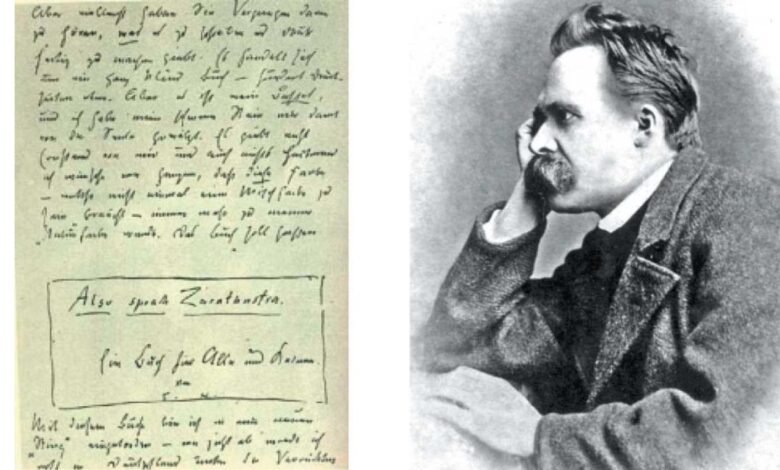 Aber vielleicht haben Sie Vergnügen daran
zu hören, was es zu schreiben und druck
fertig zu machen giebt. Es handelt sich
um ein ganz kleines Buch — hundert Druck-
seiten etwa. Aber es ist mein Bestes,
und ich habe einen schweren Stein mir damit
von der Seele gewälzt. Es giebt nichts
von mir und auch nichts
ich wünsche von Herzen, daß diese Farbe
— welche nicht einmal eine Mischfarbe zu
sein braucht — immer mehr zu meiner
„Naturfarbe" werde. Das Buch soll heissen
Also sprach Zarathustra.
Ein Buch für Alle und Keinen.
Von
Mit diesem Buche bin ich in einen neuen
„Ring" eingetreten — von jetzt ab werde ich
wohl in Deutschland unter die Verrückten